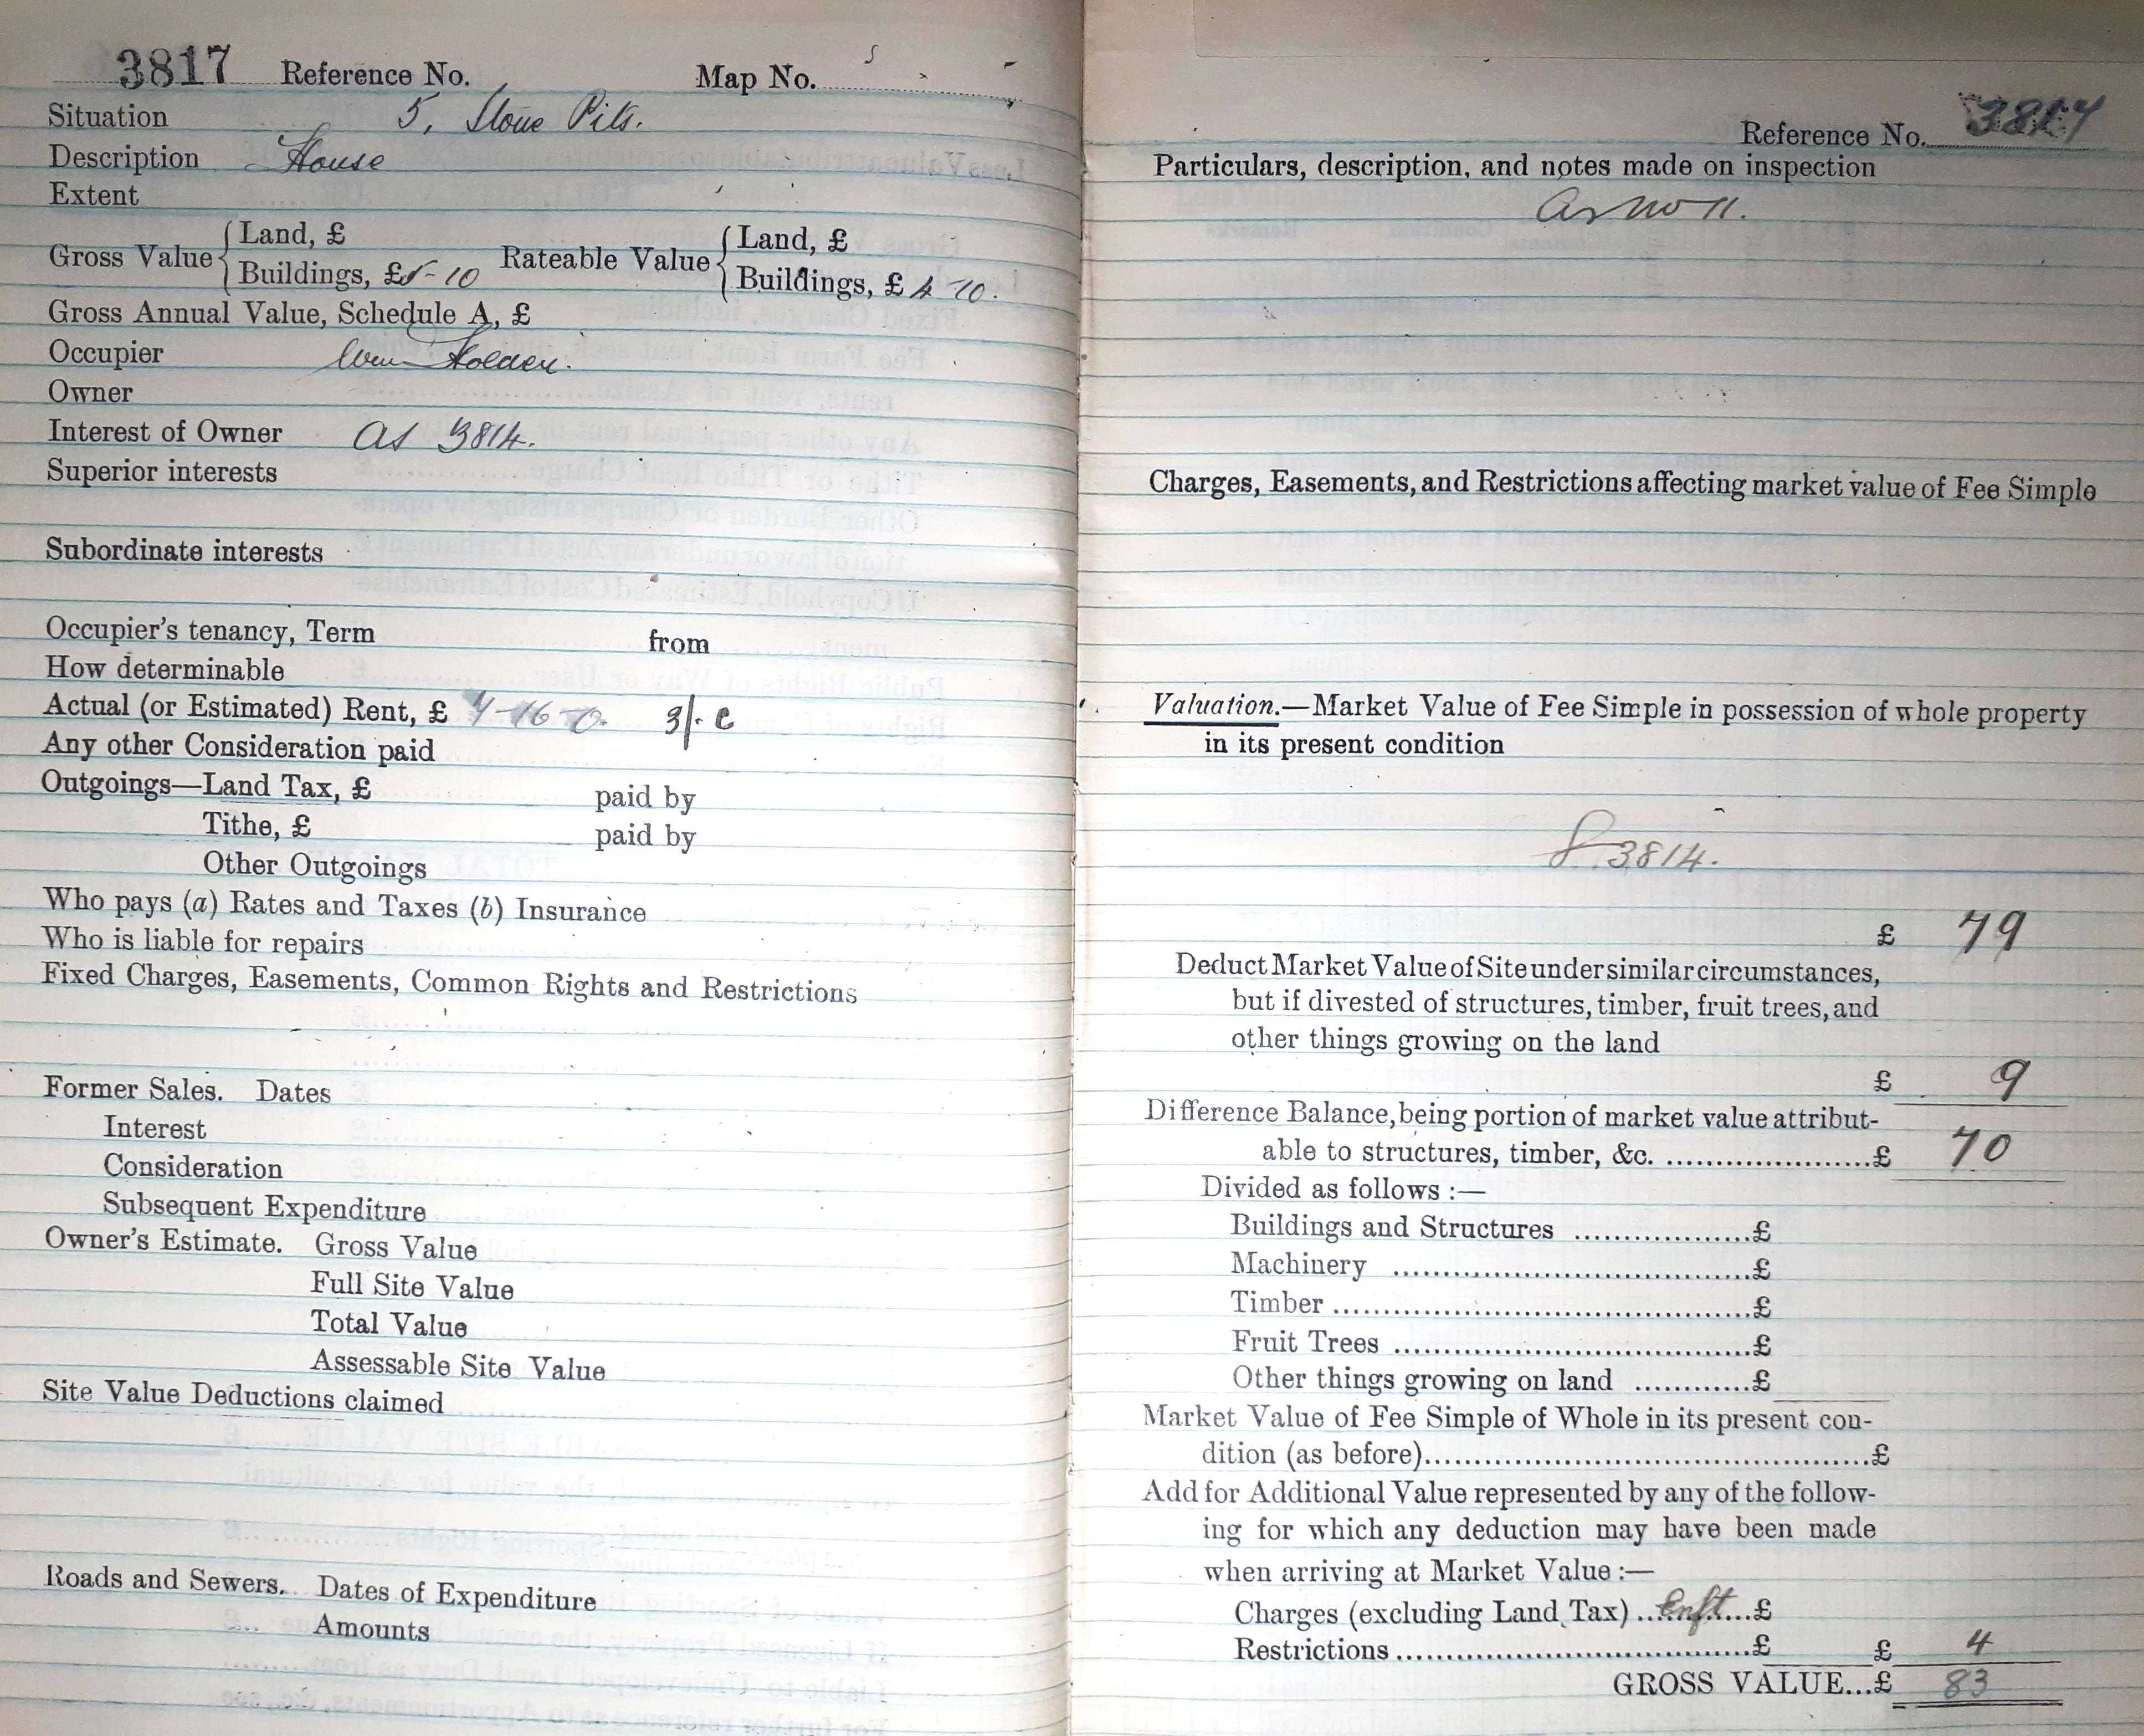 3817 Reference No. Map No.
Situation 5, Stone Pits.
Description House
Extent
Gross Value { Land, £
Buildings, £5-10
Rateable Value { Land, £
Buildings, £ 4-10.
Gross Annual Value, Schedule A, £
Occupier Wm Holden.
Owner
Interest of Owner as 3814.
Superior interests
Subordinate interests
Occupier's tenancy, Term from
How determinable
Actual (or Estimated) Rent, £ 7-16-0. 3/- c
Any other Consideration paid
Outgoings—Land Tax, £ paid by
Tithe, £ paid by
Other Outgoings
Who pays (a) Rates and Taxes (b) Insurance
Who is liable for repairs
Fixed Charges, Easements, Common Rights and Restrictions
Former Sales. Dates
Interest
Consideration
Subsequent Expenditure
Owner's Estimate. Gross Value
Full Site Value
Total Value
Assessable Site Value
Site Value Deductions claimed
Roads and Sewers. Dates of Expenditure
Amounts
Reference No. 3817
Particulars, description, and notes made on inspection
As No 11.
Charges, Easements, and Restrictions affecting market value of Fee Simple
Valuation.—Market Value of Fee Simple in possession of whole property
in its present condition
3814.
£ 79
Deduct Market Value of Site under similar circumstances,
but if divested of structures, timber, fruit trees, and
other things growing on the land
£ 9
Difference Balance, being portion of market value attribut-
able to structures, timber, &c. ......................£ 70
Divided as follows :—
Buildings and Structures ..................£
Machinery .....................................£
Timber ...........................................£
Fruit Trees .....................................£
Other things growing on land ............£
Market Value of Fee Simple of Whole in its present con-
dition (as before)..............................................£
Add for Additional Value represented by any of the follow-
ing for which any deduction may have been made
when arriving at Market Value :—
Charges (excluding Land Tax) ..Enft....£
Restrictions .....................................£ £ 4
GROSS VALUE...£ 83